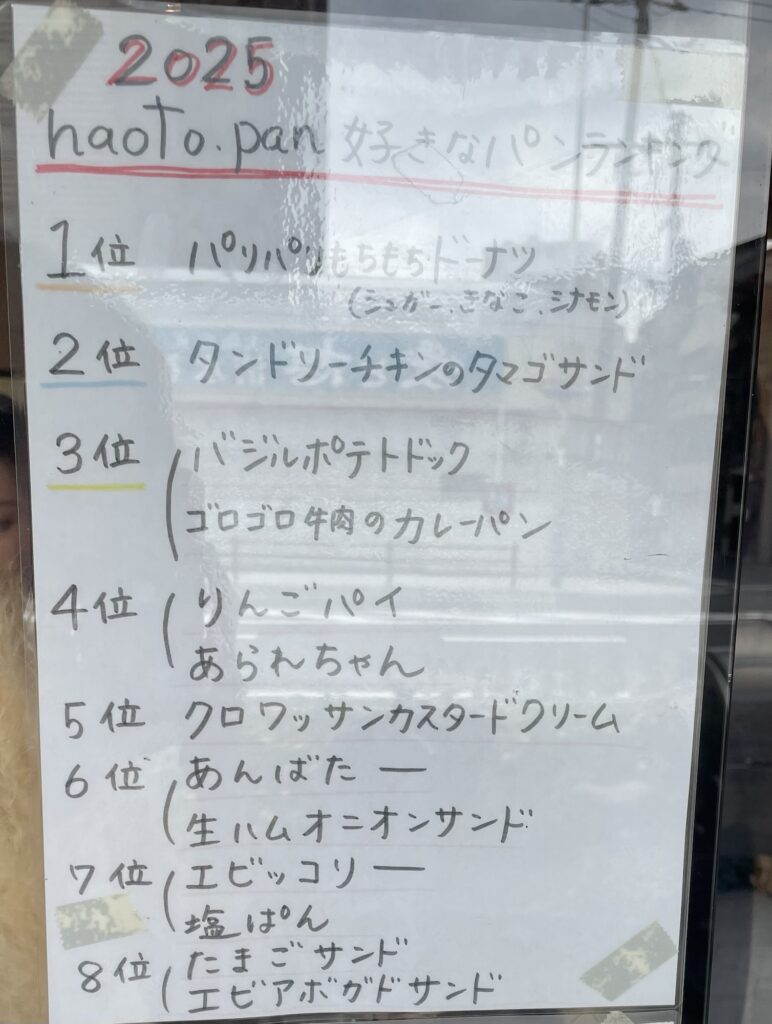 2025
haoto.pan 好きなパンランキング
1位 パリパリもちもちドーナツ
(シュガー、きなこ、シナモン)
2位 タンドリーチキンのタマゴサンド
3位 バジルポテトドック
ゴロゴロ牛肉のカレーパン
4位 りんごパイ
あられちゃん
5位 クロワッサンカスタードクリーム
6位 あんばたー
生ハムオニオンサンド
7位 エビッコリー
塩ぱん
8位 たまごサンド
エビアボガドサンド